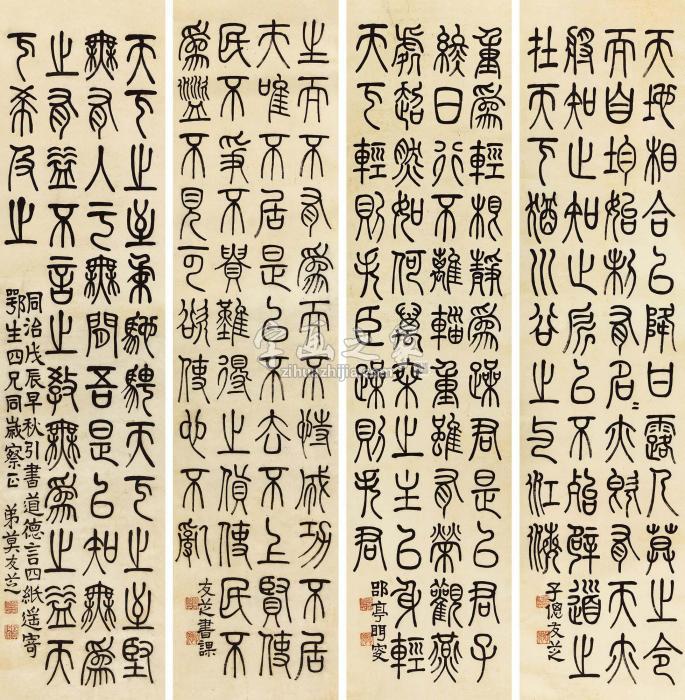 天地相合以降甘露人莫之令
而自均始制有名〻亦既有天亦
將知之知之所以不殆譬道之
在天下猶川谷之與江海
子偲友芝
重為輕根靜為躁君是以君子
終日行不離輜重雖有榮觀燕
處超然如何萬乘之主以身輕
天下輕則失臣躁則失君
郘亭眲叟
生而不有為而不恃成功不居
夫唯不居是以不去不上賢使
民不爭不貴難得之貨使民不
為盜不見可欲使心不亂
友芝書課
天下之至柔馳騁天下之至堅
無有入于無間吾是以知無為
之有益不言之教無為之益天
下希及之
同治戊辰早秋引書道德言四紙遙寄
鄂生四兄同歲察正 弟莫友芝
字画之家